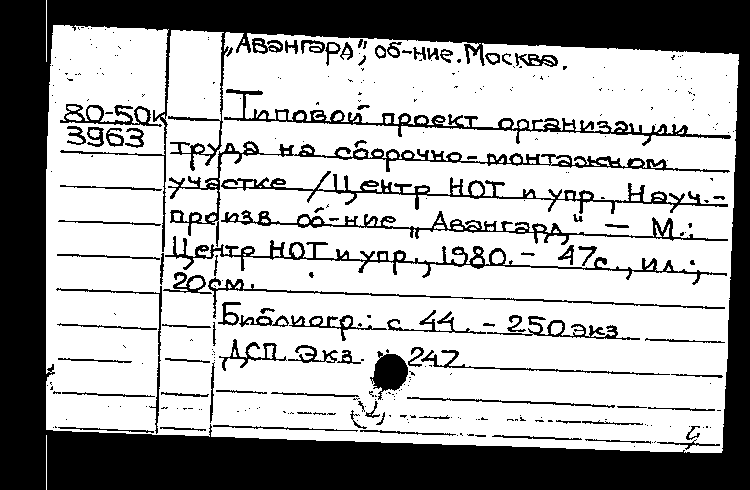 „Авангард", об-ние. Москва.
80-50к
3963
Типовой проект организации
труда на сборочно-монтажном
участке /Центр НОТ и упр., Науч.-
произв. об-ние „Авангард". — М.:
Центр НОТ и упр., 1980. - 47с., ил.;
20см.
Библиогр.: с 44. - 250 экз
ДСП. Экз. 247